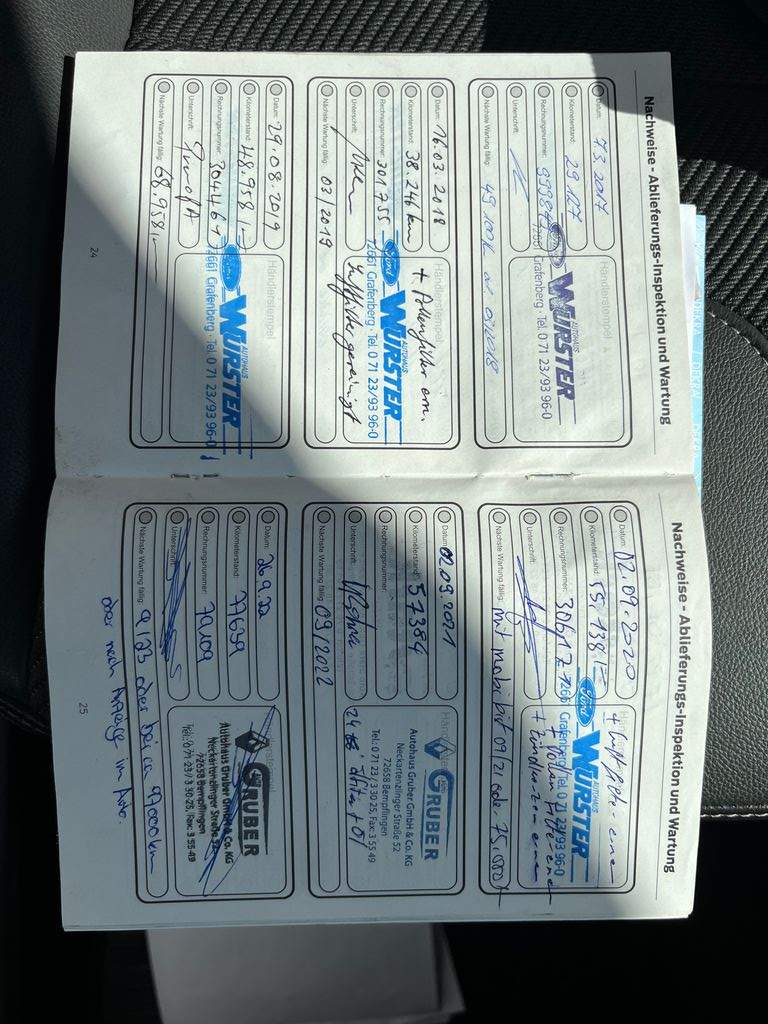 Nachweise - Ablieferungs-Inspektion und Wartung
Datum: 7.3.2017
Kilometerstand: 29 127
Rechnungsnummer:
Unterschrift:
Nächste Wartung fällig:
Ford
AUTOHAUS
WURSTER
Grafenberg · Tel. 0 71 23/93 96-0
Datum: 16.03.2018
Kilometerstand: 38 246 km
Rechnungsnummer: 301755
Unterschrift:
Nächste Wartung fällig: 03/2019
Händlerstempel
+ Pollenfilter ern.
Ford
AUTOHAUS
WURSTER
72661 Grafenberg · Tel. 0 71 23/93 96-0
Luftfilter gereinigt
Datum: 29.08.2019
Kilometerstand: 48.958
Rechnungsnummer: 304461
Unterschrift:
Nächste Wartung fällig: 68.958
Händlerstempel
Ford
AUTOHAUS
WURSTER
72661 Grafenberg · Tel. 0 71 23/93 96-0
24
Nachweise - Ablieferungs-Inspektion und Wartung
Datum: 02.09.2020
Kilometerstand: 55.138
Rechnungsnummer: 30617
Unterschrift:
Nächste Wartung fällig: 09/21 75.000
Ford
AUTOHAUS
WURSTER
Grafenberg/Tel. 0 71 23/93 96-0
Datum: 02.09.2021
Kilometerstand: 57384
Rechnungsnummer:
Unterschrift:
Nächste Wartung fällig: 09/2022
GRUBER
Autohaus Gruber GmbH & Co. KG
Neckartenzlinger Straße 52
72658 Bempflingen
Tel.: 0 71 23 / 3 30 25, Fax: 3 55 49
Datum: 26.9.22
Kilometerstand: 77639
Rechnungsnummer: 79109
Unterschrift:
Nächste Wartung fällig: 9/23 oder bei ca 97000 km
oder nach Anzeige im Auto.
GRUBER
Autohaus Gruber GmbH & Co. KG
Neckartenzlinger Straße 52
72658 Bempflingen
Tel.: 0 71 23 / 3 30 25, Fax: 3 55 49
25
DEKRA